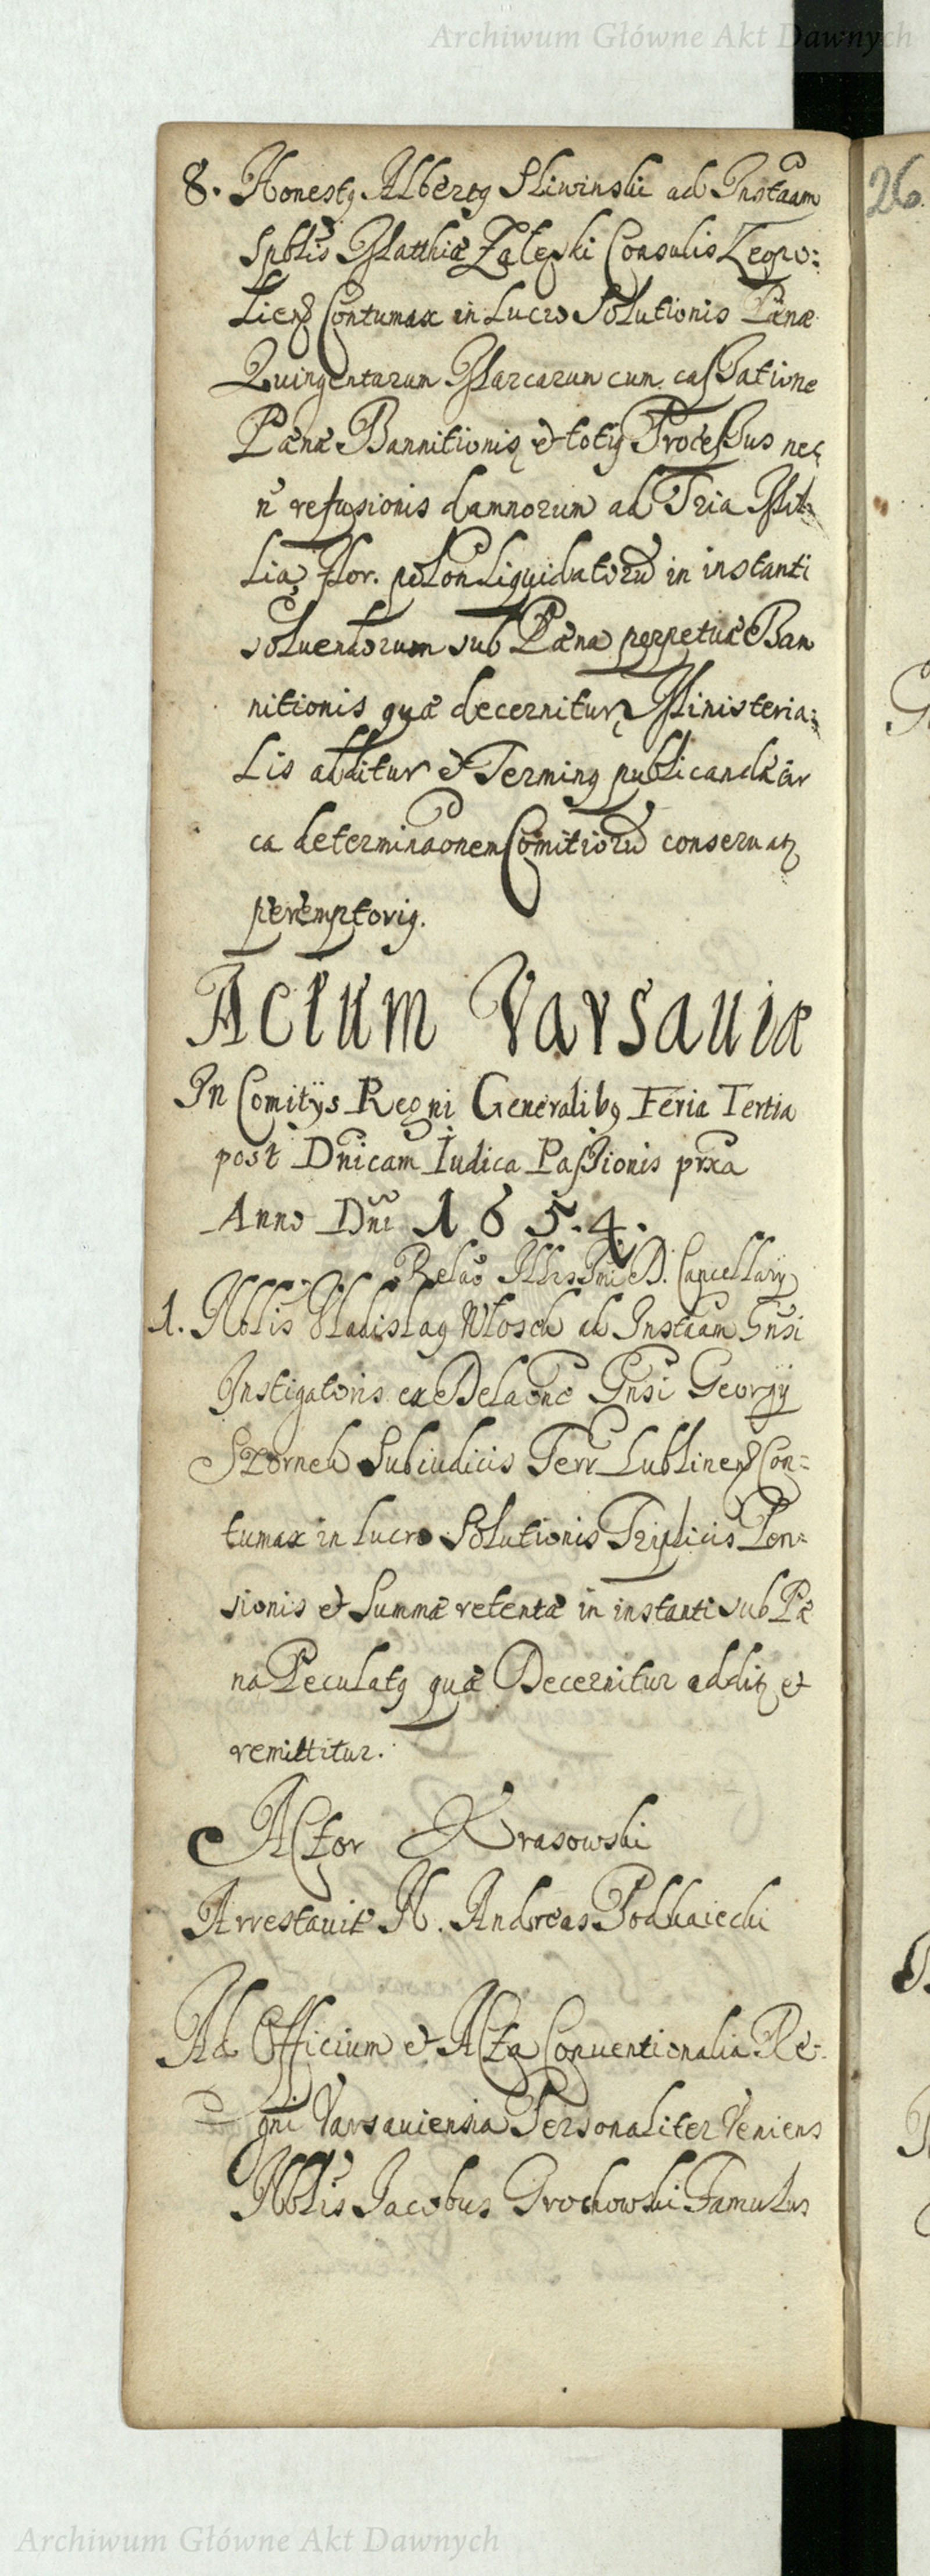 Archiwum Główne Akt Dawnych
8. Honestg Albertg Sliwinski ad Instaam
Spblis Matthiæ Zaleski Consulis Leopo:
liens Contumax in Lucro Solutionis Pænæ
Quingentarum Marcarum cum cassatione
Pænæ Bannitionis & totig Processus nec
n̄ refusionis damnorum ad Tria Mil:
lia Flor. polon liquidatorū in instanti
soluendorum sub Pæna perpetuæ Ban
nitionis quæ decernitur Ministeria:
lis additur & Terming publicandæ cir
ca determinaonem Comitiorū conseruat
peremptorig.
Actum Varsauiæ
In Comitijs Regni Generalibg Feria Tertia
post Dnicam Iudica Passionis prxa
Anno Dni 1654.
Relaō Illrs Dni D. Cancellarij
1. Nblis Vladislag Wlosch ad Instaam Gnsi
Instigatoris ex Delaone Gnsi Georgij
Subiudicis Terr Lublinens Con=
tumax in lucro Solutionis Triplicis Pen=
sionis & Summæ retentæ in instanti sub Pæ
na Peculatg quæ Decernitur addit &
remittitur.
Actor Krasowski
Arrestauit N. Andreas Podhaiecki
Ad Officium & Acta Conuentionalia Re:
gni Varsauiensia Personaliter Veniens
Nblis Jacobus Grochowski Famulus
26.
Archiwum Główne Akt Dawnych